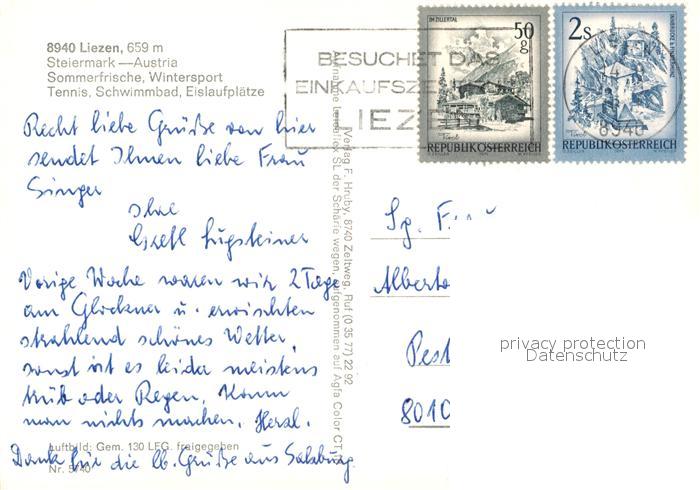 8940 Liezen, 659 m
Steiermark — Austria
Sommerfrische, Wintersport
Tennis, Schwimmbad, Eislaufplätze
BESUCHET DAS
EINKAUFSZE
LIEZE
IM ZILLERTAL
50 g
REPUBLIK ÖSTERREICH
2 S
REPUBLIK ÖSTERREICH
8940
Recht liebe Grüße von hier
sendet Ihnen liebe Frau
Singer
Ihre
Gretl Lugsteiner
Vorige Woche waren wir 2 Tage
am Glockner u. erwischten
strahlend schönes Wetter,
sonst ist es leider meistens
trüb oder Regen. Kann
man nichts machen. Herzl.
Dank für die lb. Grüße aus Salzburg.
Luftbild: Gem. 130 LFG. freigegeben
Nr. 5740
Verlag F. Hruby, 8740 Zeltweg, Ruf (0 35 77) 22 92
SL der Schärfe wegen, aufgenommen auf Agfa Color CT
Sg. F
Alberto
Pest
8010
privacy protection
Datenschutz